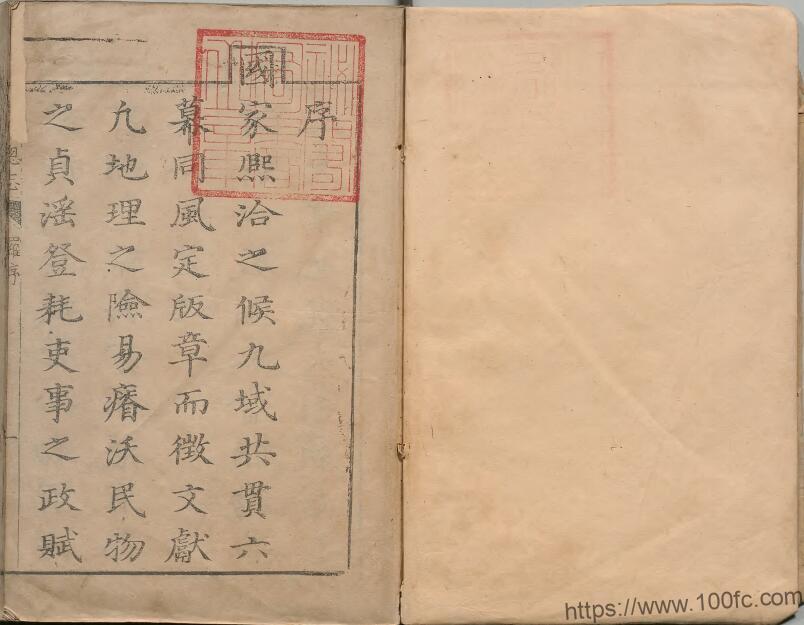 序
國家熈洽之候九域共貫六
幕同風定版章而徵文獻
凢地理之險易瘠沃民物
之貞滛登耗吏事之政賦
羅序
https://www.100fc.com